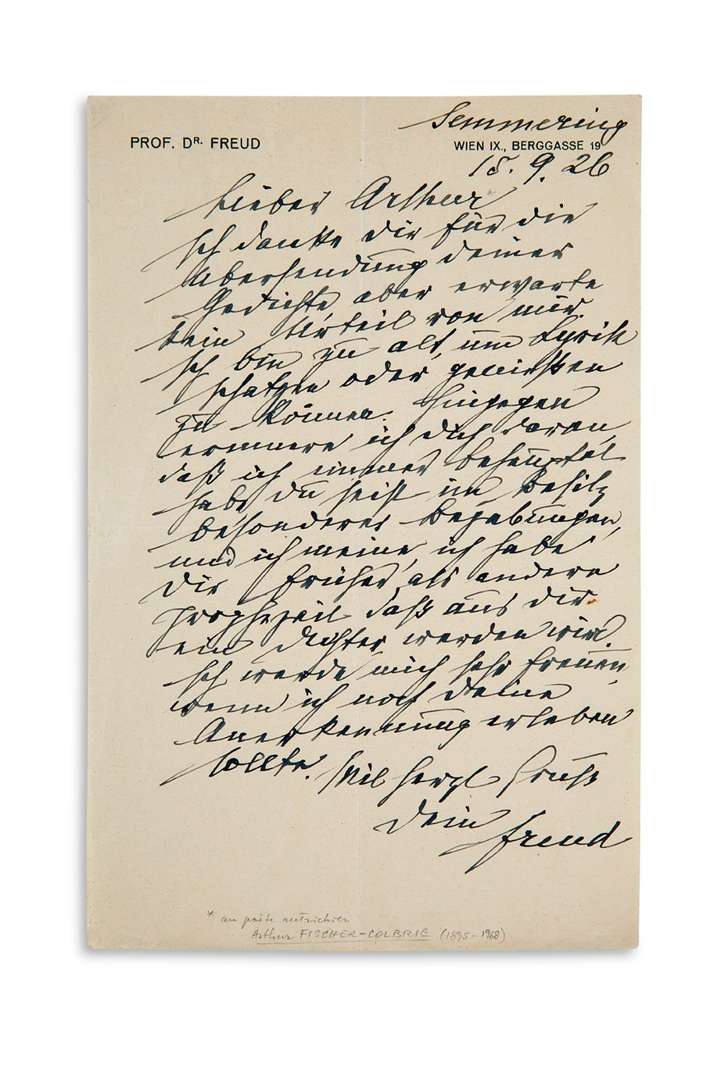 Semmering
PROF. DR. FREUD
WIEN IX., BERGGASSE 19
15. 9. 26
Lieber Arthur
Ich danke dir für die
Übersendung deiner
Gedichte aber erwarte
kein Urteil von mir.
Ich bin zu alt, um Lyrik
schätzen oder genießen
zu können. Hingegen
erinnere ich dich daran,
daß ich immer behauptet
habe du seist im Besitz
besonderer Begabungen,
und ich meine, ich habe
dir früher als andere
prophezeit daß aus dir
ein Dichter werden wird.
Ich werde mich sehr freuen,
wenn ich noch deine
Anerkennung erleben
sollte. Mit herzl Gruß
dein Freud
* au poète autrichien
Arthur FISCHER-COLBRIE (1895-1968)